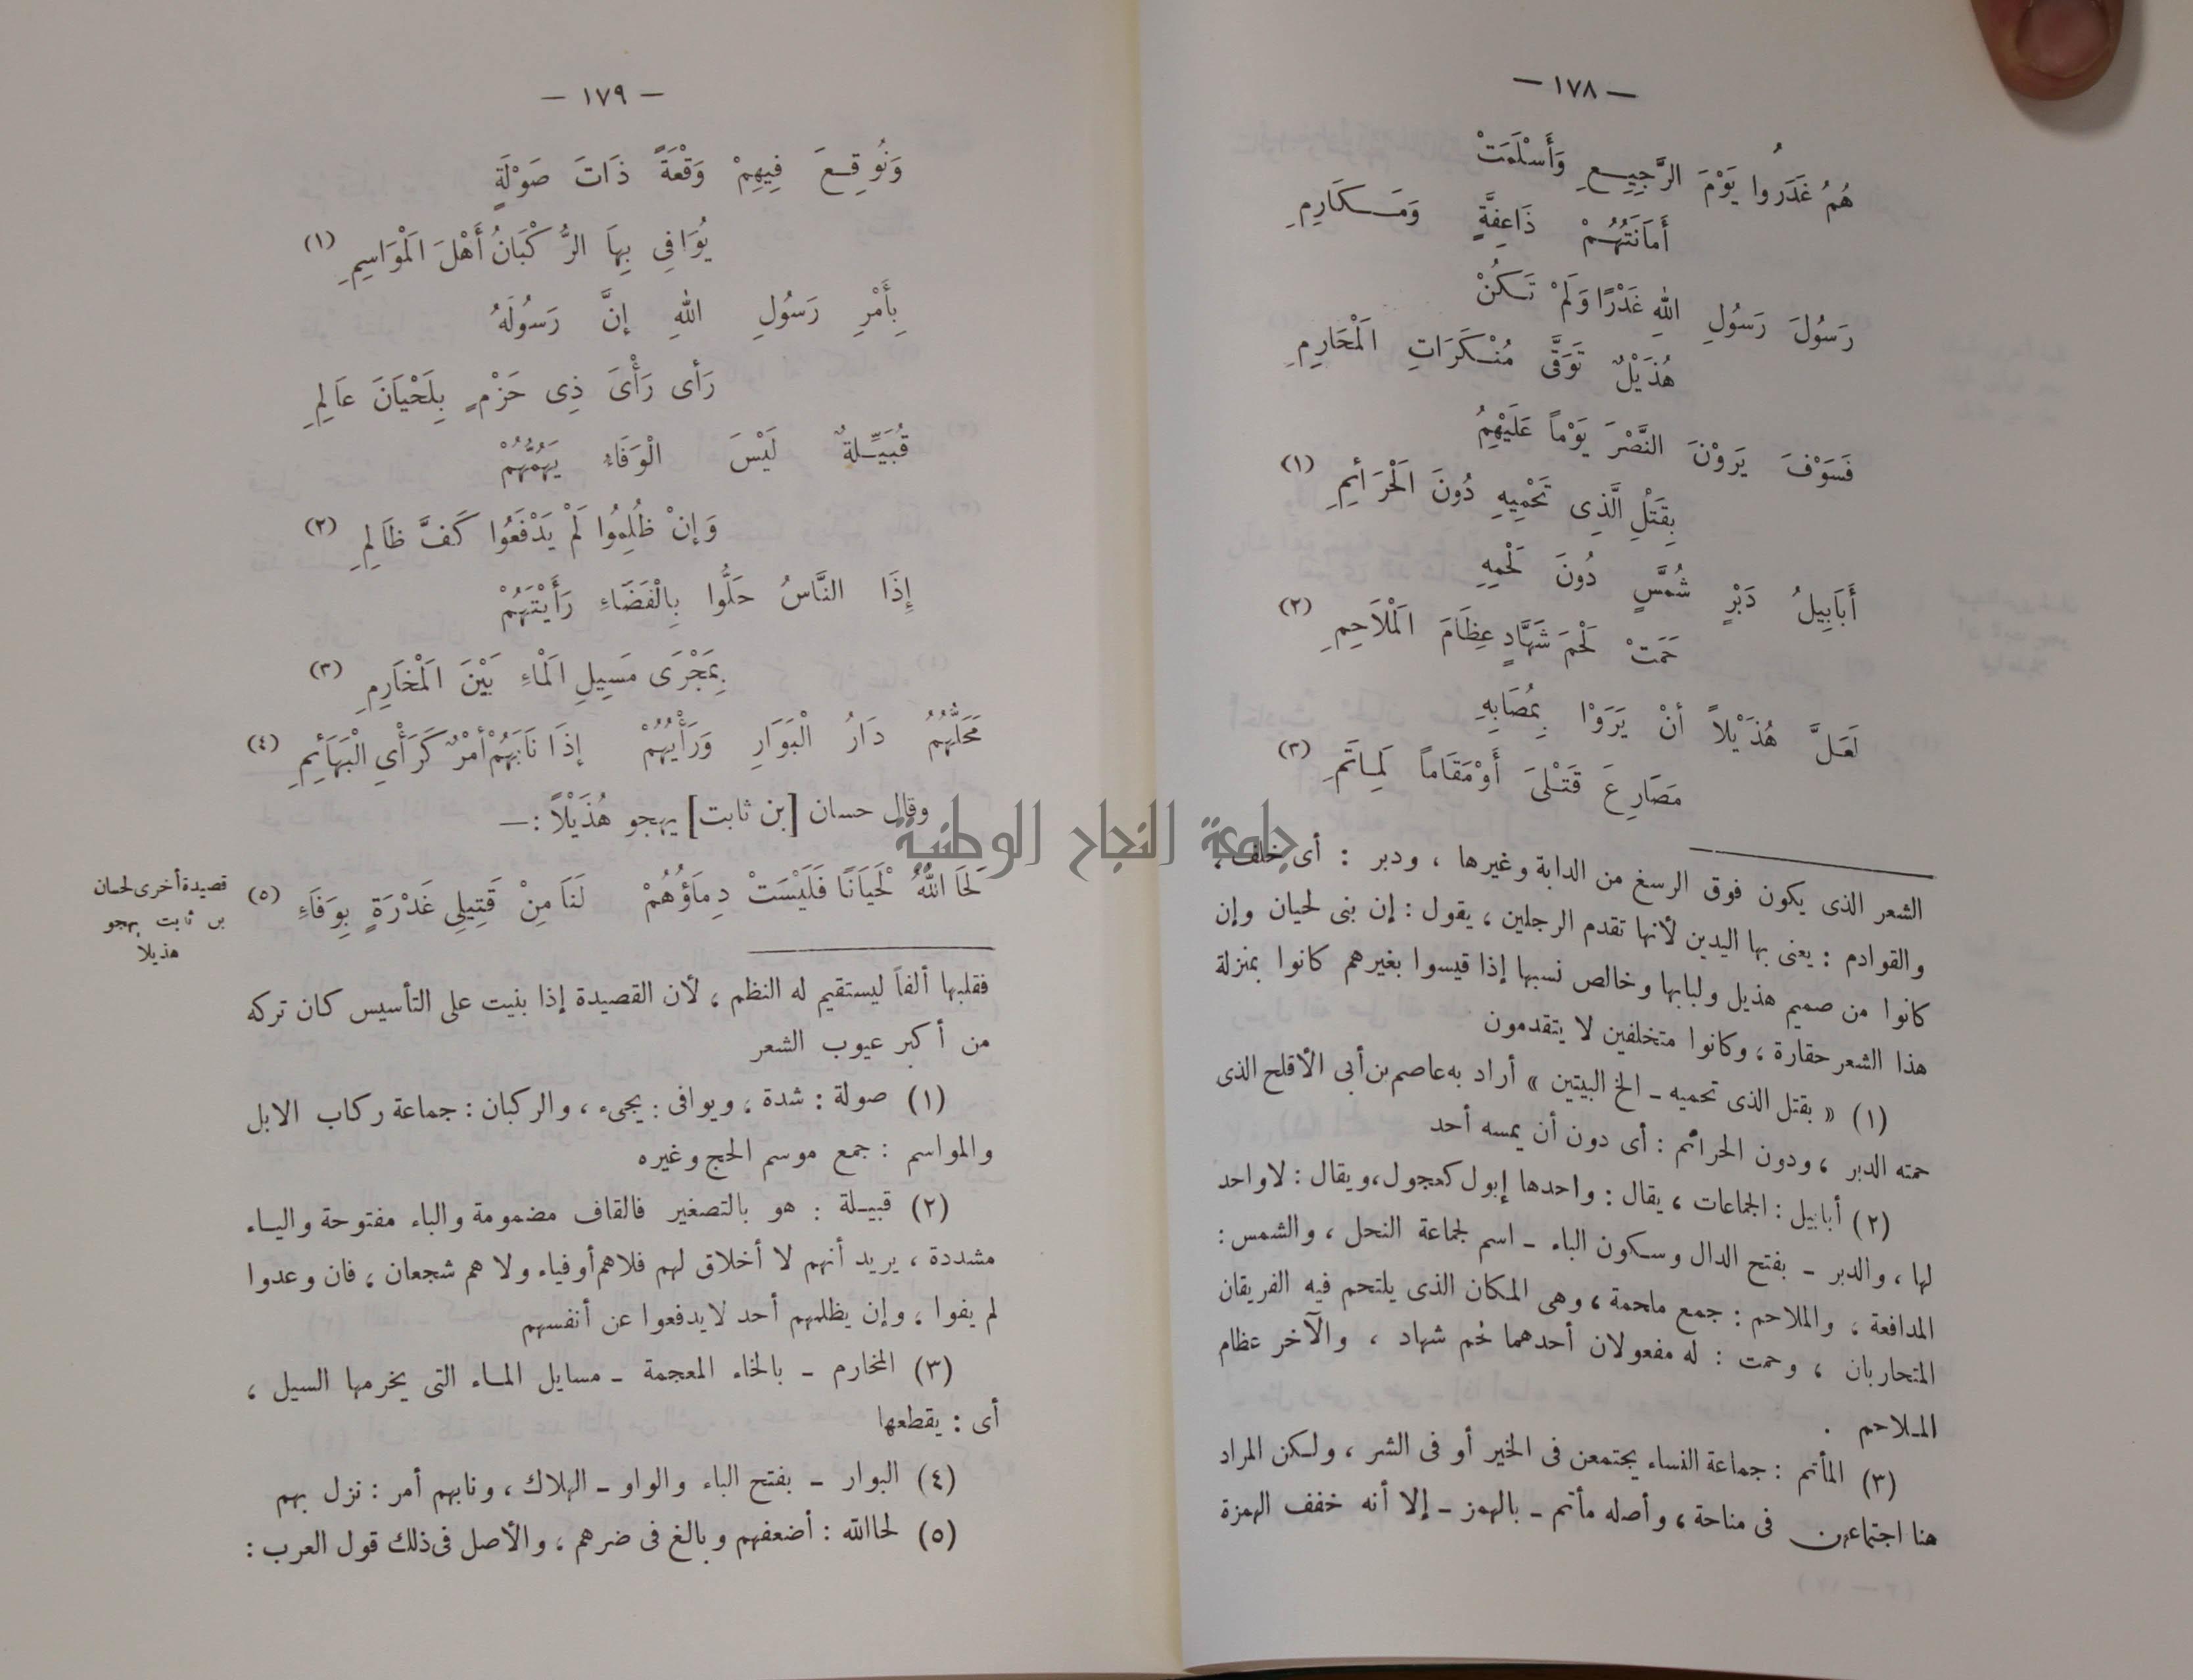 — ١٧٨ —
هُمُ غَدَرُوا يَوْمَ الرَّجِيعِ وَأَسْلَمَتْ
أَمَانَتُهُمْ ذَاعِفَّةٍ وَمَكَارِمِ
رَسُولَ رَسُولِ اللهِ غَدْرًا وَلَمْ تَكُنْ
هُذَيْلٌ تَوَقَّى مُنْكَرَاتِ الْمَحَارِمِ
فَسَوْفَ يَرَوْنَ النَّصْرَ يَوْماً عَلَيْهِمُ
بِقَتْلِ الَّذِى تَحْمِيهِ دُونَ الْحَرَائِمِ (١)
أَبَابِيلُ دَبْرٍ شُمَّسٍ دُونَ لَحْمِهِ
حَمَتْ لَحْمَ شَهَّادٍ عِظَامَ الْمَلَاحِمِ (٢)
لَعَلَّ هُذَيْلاً أَنْ يَرَوْا بِمُصَابِهِ
مَصَارِعَ قَتْلَى أَوْمَقَاماً لِمَاتَمِ (٣)
الشعر الذى يكون فوق الرسغ من الدابة وغيرها ، ودبر : أى خلف ،
والقوادم : يعنى بها اليدين لأنها تقدم الرجلين ، يقول : إن بنى لحيان وإن
كانوا من صميم هذيل ولبابها وخالص نسبها إذا قيسوا بغيرهم كانوا بمنزلة
هذا الشعر حقارة ، وكانوا متخلفين لا يتقدمون
(١) « بقتل الذى تحميه ـ الخ البيتين » أراد به عاصم بن أبى الأقلح الذى
حمته الدبر ، ودون الحرائم : أى دون أن يمسه أحد
(٢) أبابيل : الجماعات ، يقال : واحدها إبول كعجول ، ويقال : لا واحد
لها ، والدبر ـ بفتح الدال وسكون الباء ـ اسم لجماعة النحل ، والشمس :
المدافعة ، والملاحم : جمع ملحمة ، وهى المكان الذى يلتحم فيه الفريقان
المتحاربان ، وحمت : له مفعولان أحدهما لحم شهاد ، والآخر عظام
الملاحم .
(٣) المأتم : جماعة النساء يجتمعن فى الخير أو فى الشر ، ولكن المراد
هنا اجتماعهن فى مناحة ، وأصله مأتم ـ بالهمز ـ إلا أنه خفف الهمزة
— ١٧٩ —
وَنُوقِعَ فِيهِمْ وَقْعَةً ذَاتَ صَوْلَةٍ
يُوَافِى بِهَا الرُّكْبَانُ أَهْلَ الْمَوَاسِمِ (١)
بِأَمْرِ رَسُولِ اللهِ إِنَّ رَسُولَهُ
رَأى رَأْىَ ذِى حَزْمٍ بِلَحْيَانَ عَالِمِ
قُبَيِّلَةٌ لَيْسَ الْوَفَاءُ يَهُمُّهُمْ
وَإِنْ ظُلِمُوا لَمْ يَدْفَعُوا كَفَّ ظَالِمِ (٢)
إِذَا النَّاسُ حَلُّوا بِالْفَضَاءِ رَأَيْتَهُمْ
بِمَجْرَى مَسِيلِ الْمَاءِ بَيْنَ الْمَخَارِمِ (٣)
مَحَلَّهُمُ دَارُ الْبَوَارِ وَرَأْيُهُمْ إِذَا نَابَهُمْ أَمْرٌ كَرَأْىِ الْبَهَائِمِ (٤)
وقال حسان [بن ثابت] يهجو هُذَيْلاً : —
لَحَا اللهُ لَحْيَانًا فَلَيْسَتْ دِمَاؤُهُمْ لَنَا مِنْ قَتِيلِى غَدْرَةٍ بِوَفَاءِ (٥)
قصيدة أخرى لحسان
بن ثابت يهجو
هذيلا
فقلبها ألفاً ليستقيم له النظم ، لأن القصيدة إذا بنيت على التأسيس كان تركه
من أكبر عيوب الشعر
(١) صولة : شدة ، ويوافى : يجىء ، والركبان : جماعة ركاب الابل
والمواسم : جمع موسم الحج وغيره
(٢) قبيلة : هو بالتصغير فالقاف مضمومة والباء مفتوحة والياء
مشددة ، يريد أنهم لا أخلاق لهم فلاهم أوفياء ولا هم شجعان ، فان وعدوا
لم يفوا ، وإن يظلمهم أحد لا يدفعوا عن أنفسهم
(٣) المخارم ـ بالخاء المعجمة ـ مسايل الماء التى يخرمها السيل ،
أى : يقطعها
(٤) البوار ـ بفتح الباء والواو ـ الهلاك ، ونابهم أمر : نزل بهم
(٥) لحا الله : أضعفهم وبالغ فى ضرهم ، والأصل فى ذلك قول العرب :
جامعة النجاح الوطنية